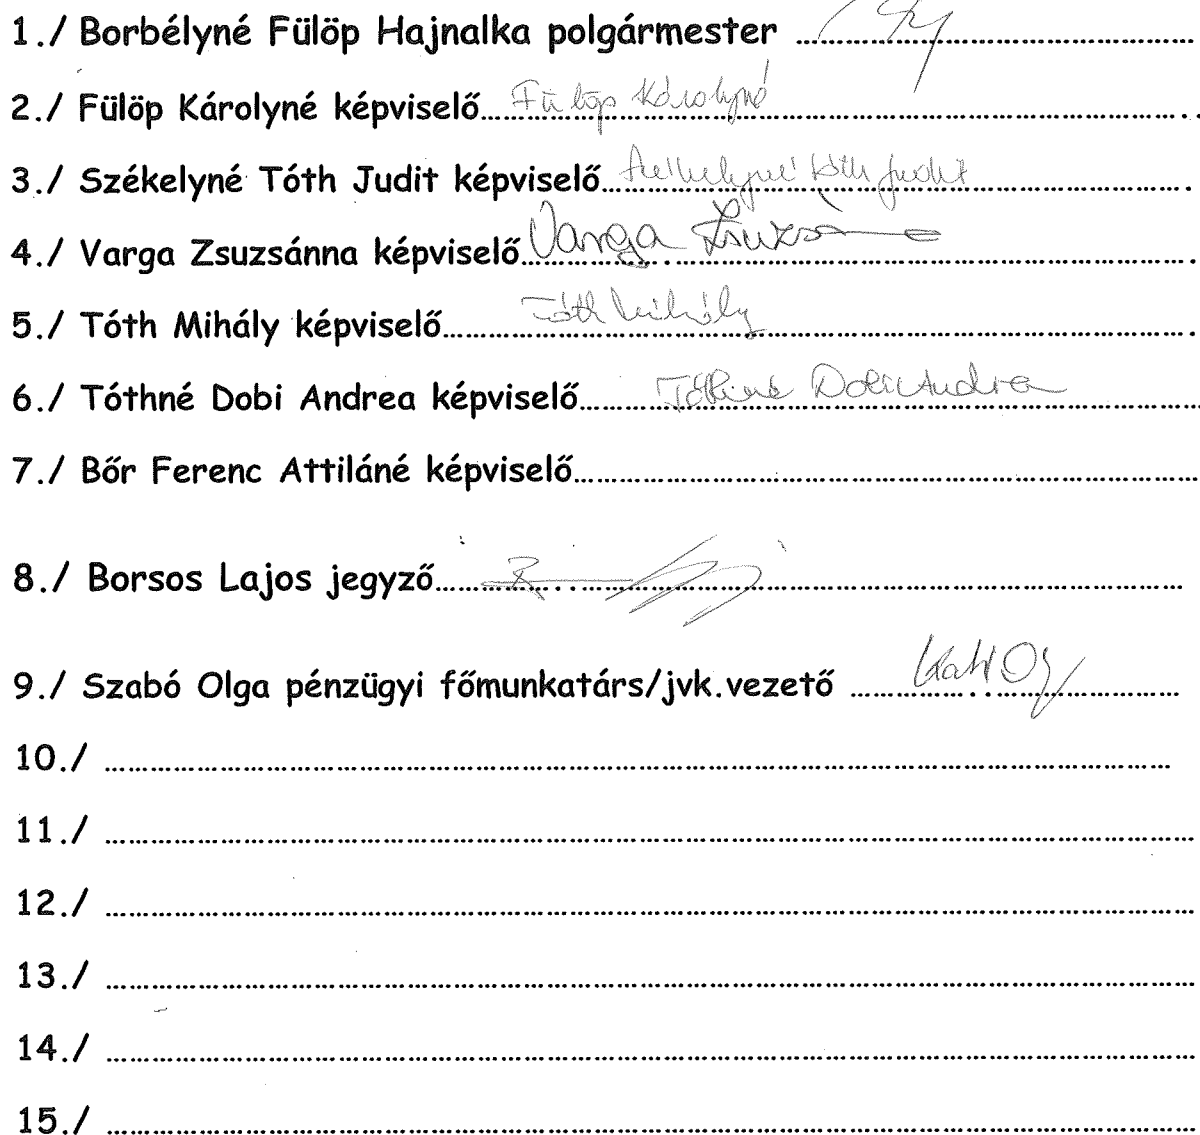 1./ Borbélyné Fülöp Hajnalka polgármester ................
2./ Fülöp Károlyné képviselő................ Fülöp Károlyné
3./ Székelyné Tóth Judit képviselő................ Székelyné Tóth Judit
4./ Varga Zsuzsánna képviselő................ Varga Zsuzsánna
5./ Tóth Mihály képviselő................ Tóth Mihály
6./ Tóthné Dobi Andrea képviselő................ Tóthné Dobi Andrea
7./ Bőr Ferenc Attiláné képviselő................
8./ Borsos Lajos jegyző................
9./ Szabó Olga pénzügyi főmunkatárs/jvk.vezető ................
10./ ................
11./ ................
12./ ................
13./ ................
14./ ................
15./ ................